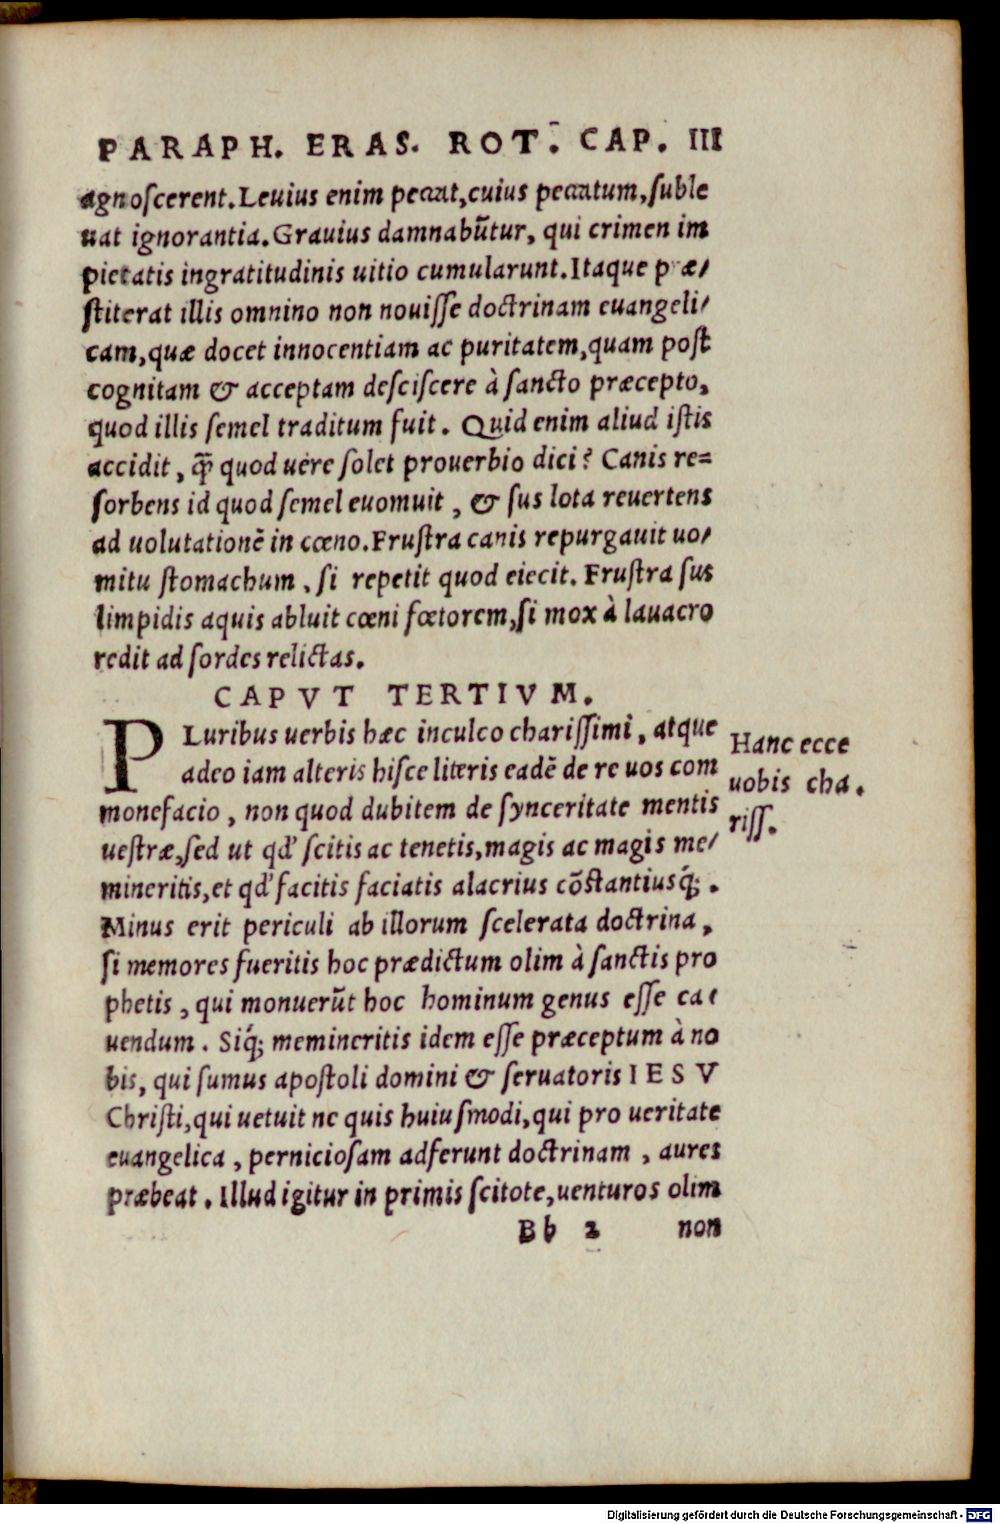 PARAPH. ERAS. ROT. CAP. III
agnoscerent. Leuius enim peccat, cuius peccatum, suble
uat ignorantia. Grauius damnabūtur, qui crimen im
pietatis ingratitudinis uitio cumularunt. Itaque præ/
stiterat illis omnino non nouisse doctrinam euangeli/
cam, quæ docet innocentiam ac puritatem, quam post
cognitam & acceptam desciscere à sancto præcepto,
quod illis semel traditum fuit. Quid enim aliud istis
accidit, q̃ quod uere solet prouerbio dici? Canis re=
sorbens id quod semel euomuit, & sus lota reuertens
ad uolutationē in cœno. Frustra canis repurgauit uo/
mitu stomachum, si repetit quod eiecit. Frustra sus
limpidis aquis abluit cœni fœtorem, si mox à lauacro
redit ad sordes relictas.
CAPVT TERTIVM.
PLuribus uerbis hæc inculco charissimi, atque
adeo iam alteris hisce literis eadē de re uos com
monefacio, non quod dubitem de synceritate mentis
uestræ, sed ut qđ scitis ac tenetis, magis ac magis me/
mineritis, et qđ facitis faciatis alacrius cōstantiusq́;.
Minus erit periculi ab illorum scelerata doctrina,
si memores fueritis hoc prædictum olim à sanctis pro
phetis, qui monuerūt hoc hominum genus esse ca/
uendum. Siq́; memineritis idem esse præceptum à no
bis, qui sumus apostoli domini & seruatoris IESV
Christi, qui uetuit ne quis huiusmodi, qui pro ueritate
euangelica, perniciosam adferunt doctrinam, aures
præbeat. Illud igitur in primis scitote, uenturos olim
Bb 2 non
Hanc ecce
uobis cha.
riss.
Digitalisierung gefördert durch die Deutsche Forschungsgemeinschaft - DFG